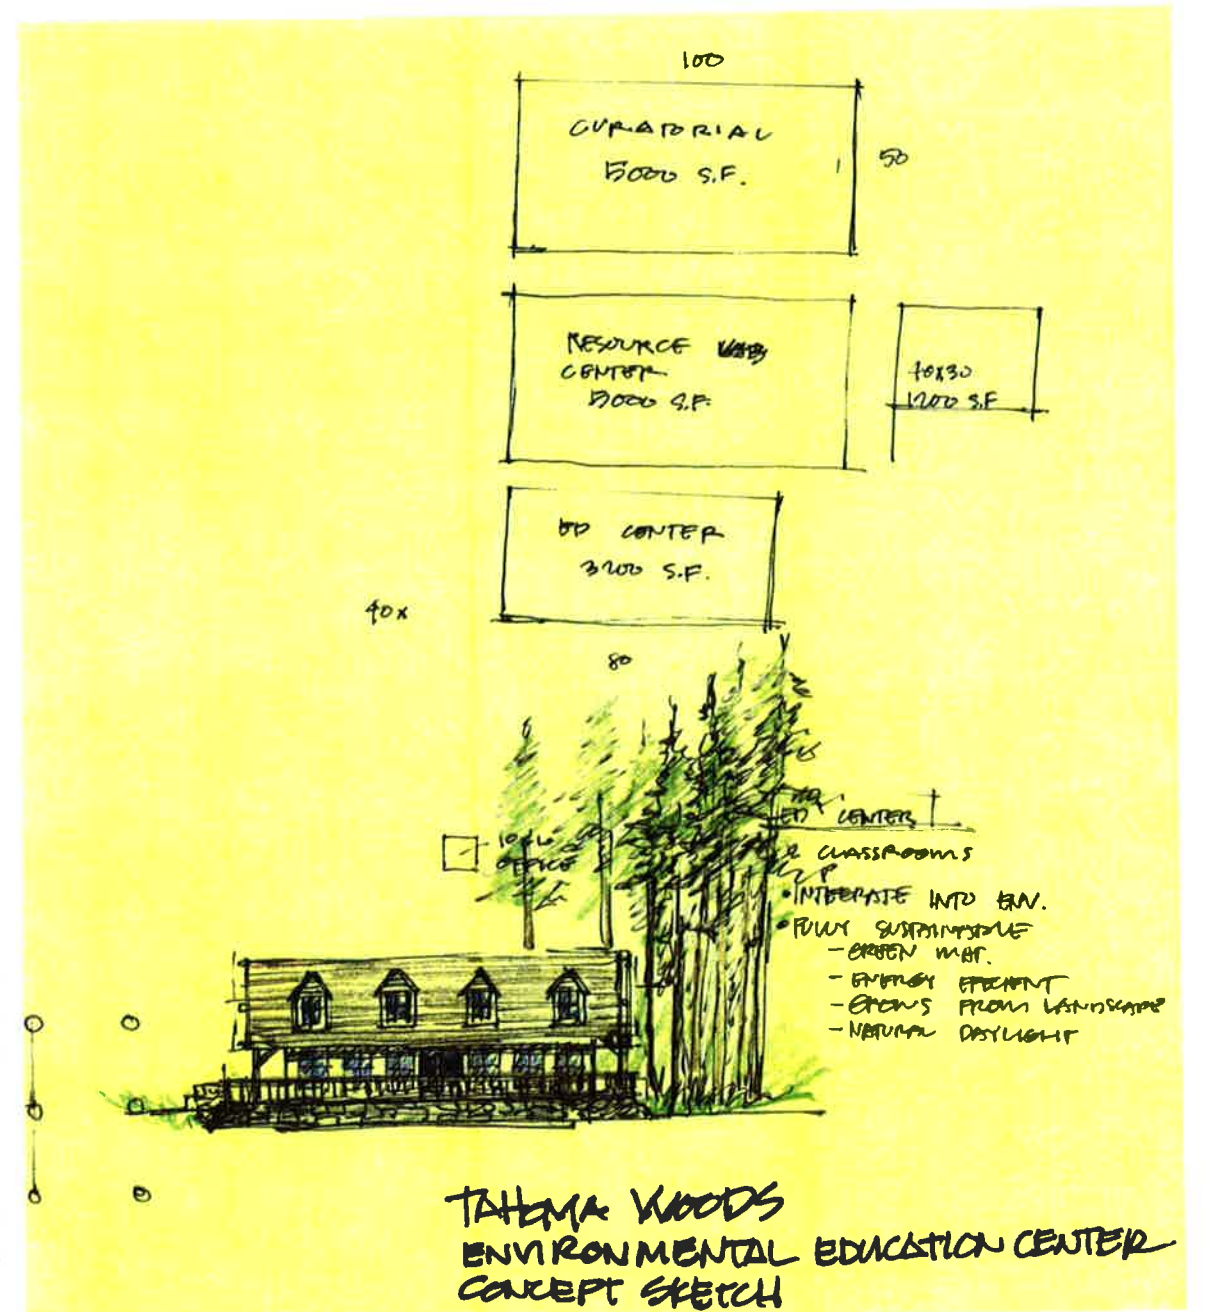 100
CURATORIAL
5000 S.F.
50
RESOURCE
CENTER
5000 S.F.
40x30
1200 S.F
ED CENTER
3200 S.F.
40x
80
ED CENTER
OFFICE
2 CLASSROOMS
• INTEGRATE INTO ENV.
• FULLY SUSTAINABLE
- GREEN MAT.
- ENERGY EFFICIENT
- GROWS FROM LANDSCAPE
- NATURAL DAYLIGHT
TAHOMA WOODS
ENVIRONMENTAL EDUCATION CENTER
CONCEPT SKETCH